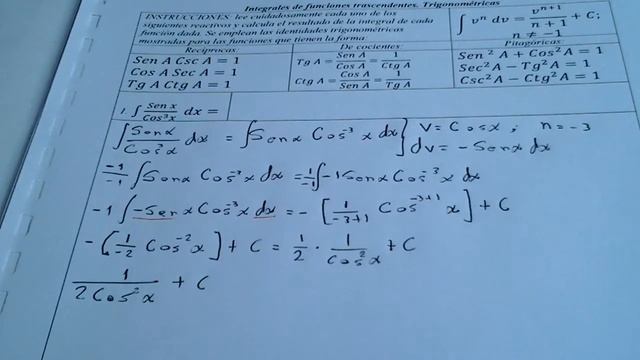 Integrales de funciones trascendentes. Trigonométricas
INSTRUCCIONES: lee cuidadosamente cada uno de los
siguientes reactivos y calcula el resultado de la integral de cada
función dada. Se emplean las identidades trigonométricas
mostradas para las funciones que tienen la forma:
∫ vⁿ dv = vⁿ⁺¹/(n + 1) + C;
n ≠ −1
Recíprocas
De cocientes
Pitagóricas
Sen A Csc A = 1
Cos A Sec A = 1
Tg A Ctg A = 1
Tg A = Sen A/Cos A = 1/Ctg A
Ctg A = Cos A/Sen A = 1/Tg A
Sen² A + Cos² A = 1
Sec² A − Tg² A = 1
Csc² A − Ctg² A = 1
1 ∫ Sen x/Cos³x dx =
∫ Sen x/Cos³x dx = ∫ Sen x Cos⁻³ x dx } v = Cos x ; n = −3
dv = − Sen x dx
−1/−1 ∫ Sen x Cos⁻³ x dx = 1/−1 ∫ −1 Sen x Cos⁻³ x dx
−1 ∫ −Sen x Cos⁻³ x dx = − [1/(−3+1) Cos⁻³⁺¹ x] + C
− [1/−2 Cos⁻² x] + C = 1/2 · 1/Cos² x + C
1/(2 Cos² x) + C